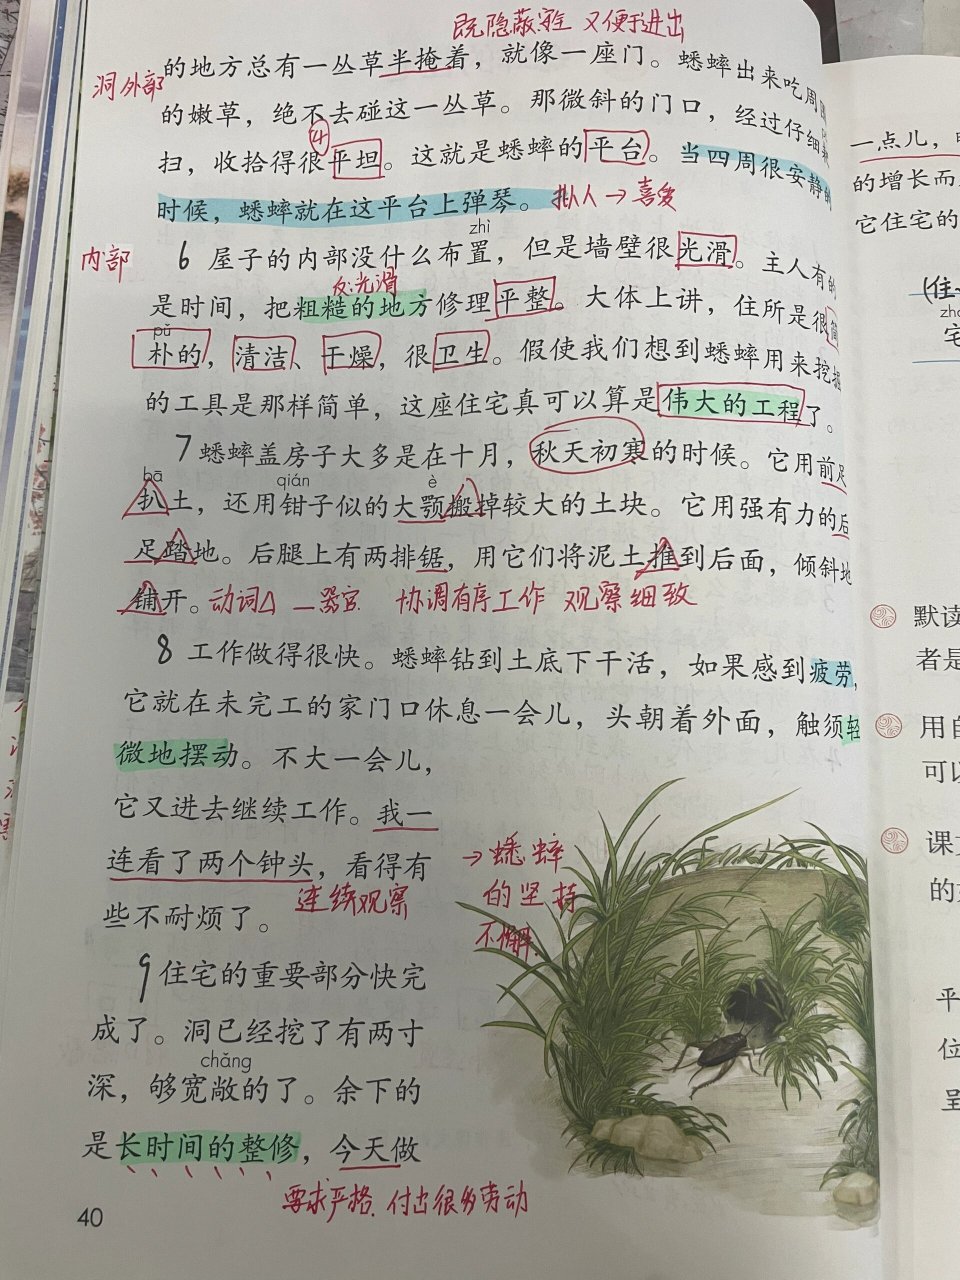 既隐蔽安全 又便于进出
洞外部
的地方总有一丛草半掩着，就像一座门。蟋蟀出来吃周围
的嫩草，绝不去碰这一丛草。那微斜的门口，经过仔细
④
扫，收拾得很平坦。这就是蟋蟀的平台。当四周很安静的
时候，蟋蟀就在这平台上弹琴。 拟人→喜爱
zhì
内部
6 屋子的内部没什么布置，但是墙壁很光滑。主人有的
反:光滑
是时间，把粗糙的地方修理平整。大体上讲，住所是很简
pǔ
朴的，清洁、干燥，很卫生。假使我们想到蟋蟀用来挖掘
的工具是那样简单，这座住宅真可以算是伟大的工程了。
7 蟋蟀盖房子大多是在十月，秋天初寒的时候。它用前足
bā qián è
扒土，还用钳子似的大颚搬掉较大的土块。它用强有力的后
足踏地。后腿上有两排锯，用它们将泥土推到后面，倾斜地
铺开。 动词△ 一器官 协调有序工作 观察细致
8 工作做得很快。蟋蟀钻到土底下干活，如果感到疲劳，
它就在未完工的家门口休息一会儿，头朝着外面，触须轻
微地摆动。不大一会儿，
它又进去继续工作。我一
连看了两个钟头，看得有
连续观察
些不耐烦了。
→蟋蟀
的坚持
不懈
9 住宅的重要部分快完
成了。洞已经挖了有两寸
chǎng
深，够宽敞的了。余下的
是长时间的整修，今天做
要求严格. 付出很多劳动
40
一点儿，
的增长而
它住宅的
(住
宅
默读
者是
用自
可以
课文
的
平
位
呈